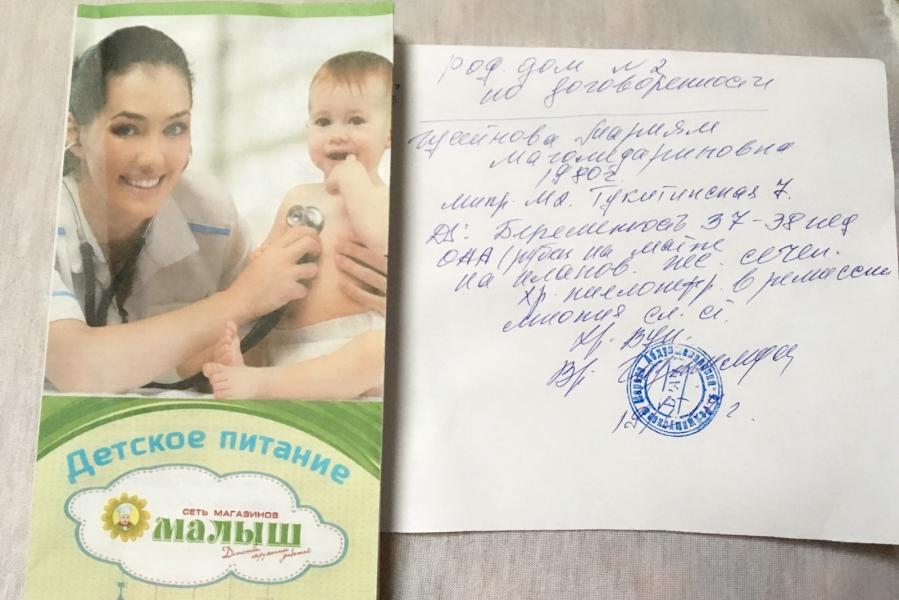 Детское питание
СЕТЬ МАГАЗИНОВ
МАЛЫШ
род. дом №2
по договоренности
Мариям
Магомедариповна
1980г.
ул. Тукитинская 7.
DS: Беременность 37-38 нед
ОАА (рубец на матке
на планов. кес. сечен.
хр. пиелонефр. в ремиссии
миопия сл. ст.
Хр. ВУИ.
Вр.